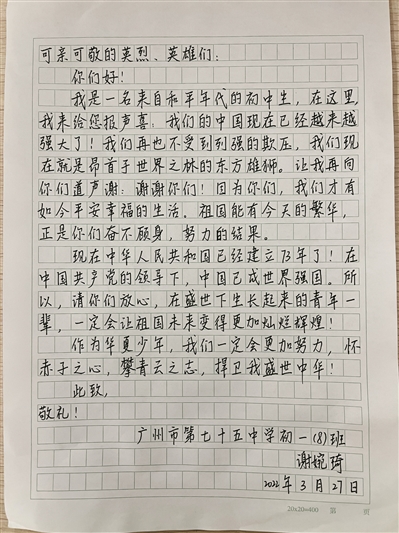 可亲可敬的英烈、英雄们:
你们好!
我是一名来自和平年代的初中生,在这里,
我来给您报声喜:我们的中国现在已经越来越
强大了!我们再也不受到列强的欺压,我们现
在就是昂首于世界之林的东方雄狮。让我再向
你们道声谢:谢谢你们!因为你们,我们才有
如今平安幸福的生活。祖国能有今天的繁华,
正是你们奋不顾身,努力的结果。
现在中华人民共和国已经建立73年了!在
中国共产党的领导下,中国已成世界强国。所
以,请你们放心,在盛世下生长起来的青年一
辈,一定会让祖国未来变得更加灿烂辉煌!
作为华夏少年,我们一定会更加努力,怀
赤子之心,攀青云之志,捍卫我盛世中华!
此致,
敬礼!
广州市第七十五中学初一(8)班
谢婉琦
2022年3月27日
20x20=400 第 页